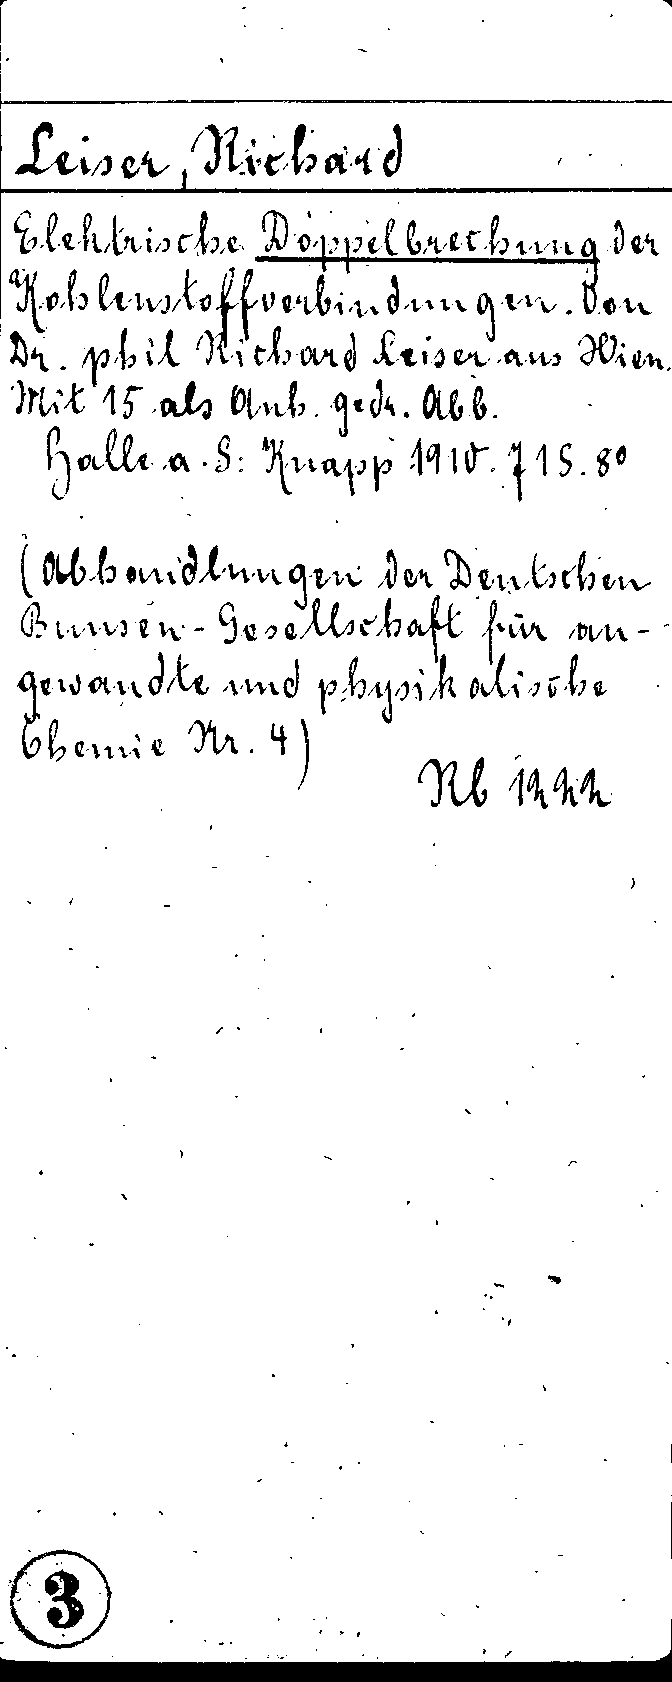 Leiser, Richard
Elektrische Doppelbrechung der
Kohlenstoffverbindungen. Von
Dr. phil Richard Leiser aus Wien.
Mit 15 als Anh. gedr. Abb.
Halle a. S: Knapp 1910. 71 S. 8º
(Abhandlungen der Deutschen
Bunsen-Gesellschaft für an-
gewandte und physikalische
Chemie Nr. 4)
Rb 1222
3